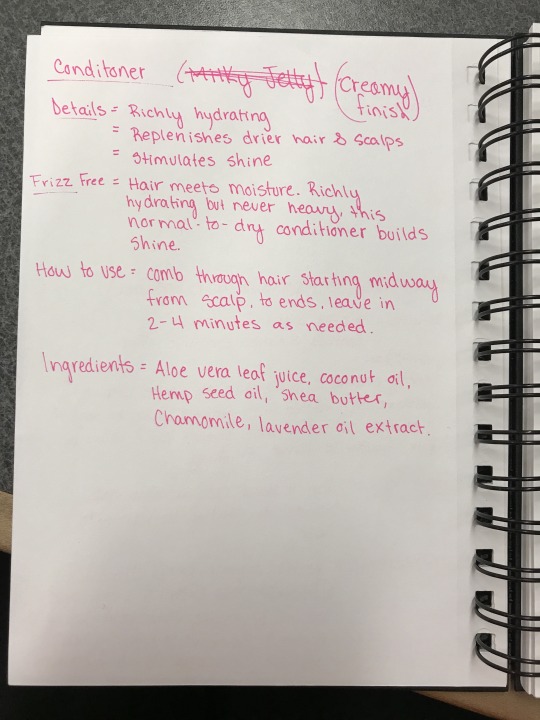 Conditoner (Milky Jelly) (Creamy
finish)
Details = Richly hydrating
= Replenishes drier hair & scalps
= Stimulates shine
Frizz Free = Hair meets moisture. Richly
hydrating but never heavy, this
normal-to-dry conditioner builds
shine.
How to use = comb through hair starting midway
from scalp, to ends, leave in
2-4 minutes as needed.
Ingredients = Aloe vera leaf juice, coconut oil,
Hemp seed oil, Shea butter,
Chamomile, lavender oil extract.